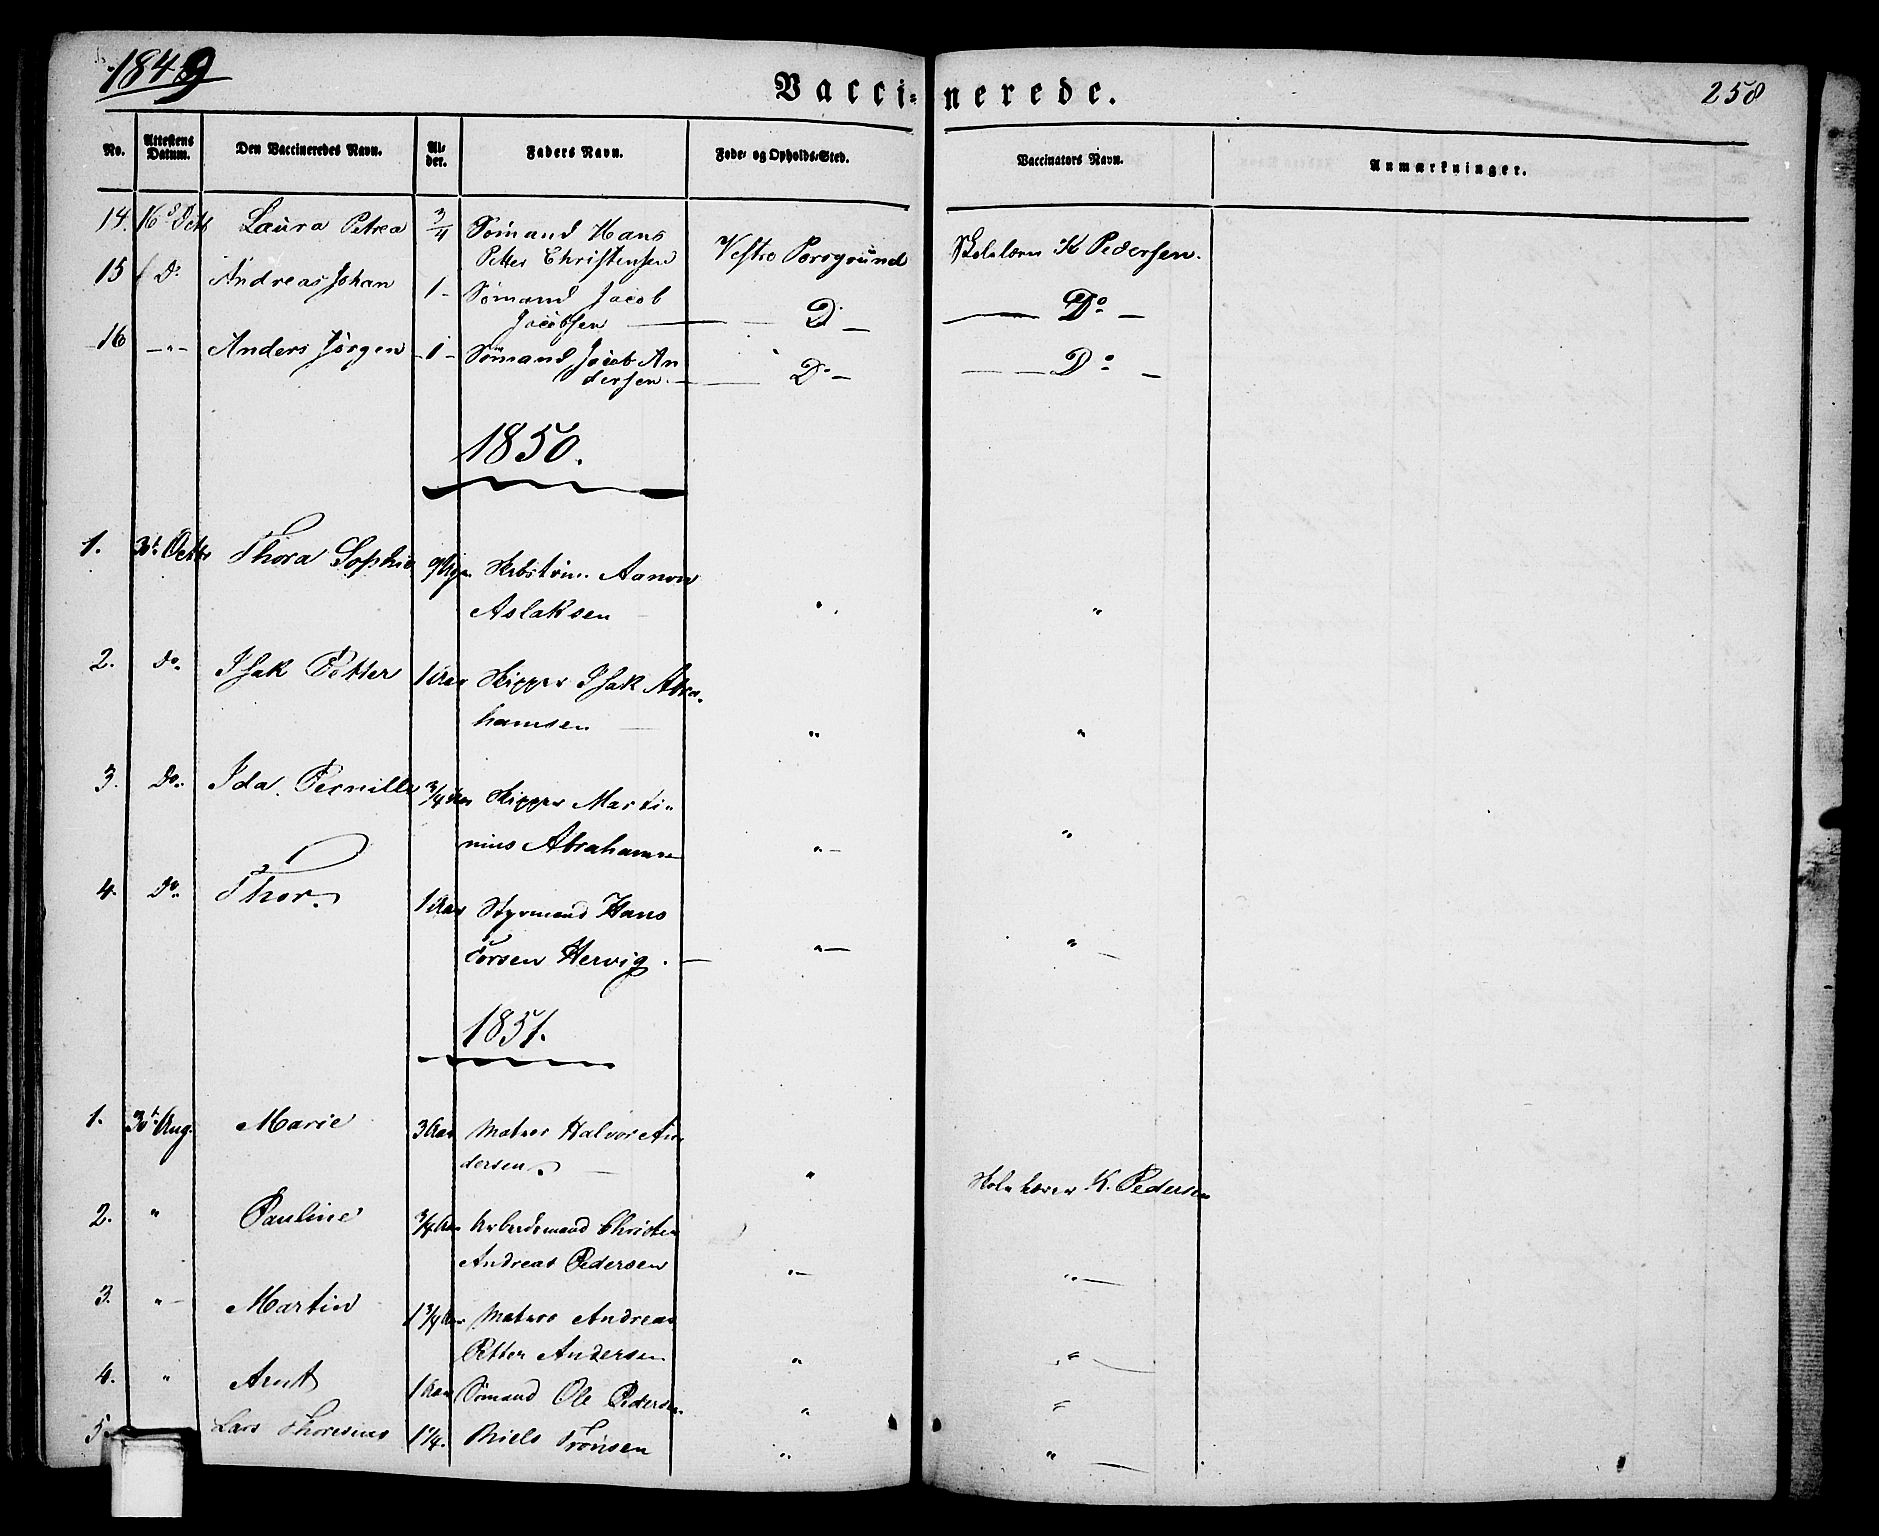 1849
Vaccinerede.
258
No. Attestens Datum. Den Vaccineredes Navn. Alder. Faders Navn. Føde- og Opholds-Sted. Vaccinators Navn. Anmærkninger.
14. 16 Octb Laura Petrea 3/4 Sømand Hans
Petter Christensen Vestre Porsgrund K Pedersen.
15 Do Andreas Johan 1 - Sømand Jacob
Jacobsen — D — — Do —
16 - " - Anders Jørgen - 1 - Sømand Jacob An
dersen. — Do — — Do —
1850.
1. 3t Octb Thora Sophie Aanon
Aslaksen — " "
2. Do. Isak Petter 1 Aar Skipper Isak Abra-
hamsen — " "
3. Do. Ida Pernille 3/4 Aar Skipper Marti-
nius Abrahamsen " — "
4. Do. Thor. 1 Aar Styrmand Hans
Torsen Hervig. — " — " —
1851.
1. 30t Aug. Marie 3 Aar Matros Halvor An
dersen. — " K. Pedersen
2. " Pauline 3/4 Aar Arbeidsmand Christen
Andreas Pedersen " — " —
3. " — Martin 1 3/4 Aar Matros Andreas
Petter Andersen " " —
4. " Arnt 1 Aar Sømand Ole Pedersen " "
5. Lars Thoresius 1 1/4. Niels Trønsen " " —